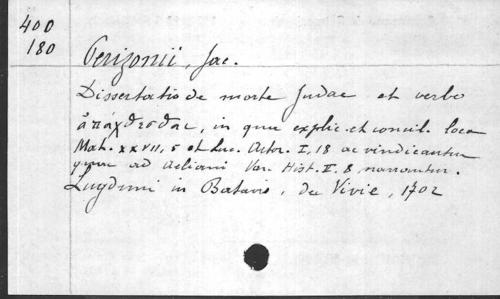 400
180
Perizonii, Jac.
Dissertatio de morte Judae et verbo
ἀπάγχεσθαι, in qua explic. et concil. loca
Mat. XXVII, 5 et Luc. Actor. I, 18 ac vindicantur
quae ad Aeliani Var. Hist. V. 8 narrantur.
Lugduni in Batavis, du Vivie, 1702